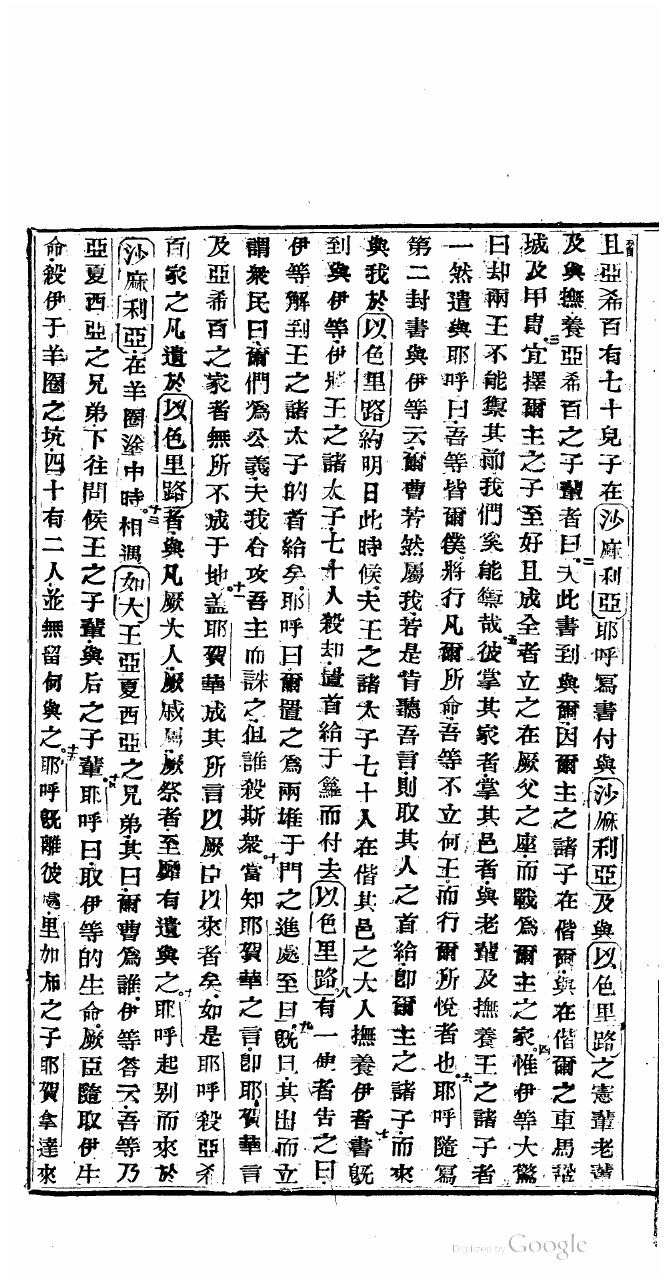 且亞希百有七十兒子在沙麻利亞耶呼寫書付與沙麻利亞及與以色里路之憲輩老輩
及與撫養亞希百之子輩者曰二夫此書到與爾因爾主之諸子在偕爾與在偕爾之車馬
城及甲胄三宜擇爾主之子至好且成全者立之在厥父之座而戰為爾主之家四惟伊等大驚
曰却兩王不能禦其前我們奚能禦哉五彼掌其家者掌其邑者與老輩及撫養王之諸子者
一然遣與耶呼曰吾等皆爾僕將行凡爾所命吾等不立何王而行爾所悅者也六耶呼隨寫
第二封書與伊等云爾曹若然屬我若是肯聽吾言則取其人之首給即爾主之諸子而來
與我於以色里路約明日此時候夫王之諸太子七十人在偕其邑之大人撫養伊者七書既
到與伊等伊將王之諸太子七十人殺却置首給于籮而付去以色里路八有一使者告之曰
伊等解到王之諸太子的首給矣耶呼曰爾置之為兩堆于門之進處至旦九既旦其出而立
謂衆民曰爾們為公義夫我合攻吾主而誅之但誰殺斯衆十當知耶賀華之言即耶賀華言
及亞希百之家者無所不成于地蓋耶賀華成其所言以厥臣以來者矣十一如是耶呼殺亞希
百家之凡遺於以色里路者與凡厥大人厥戚屬厥祭者至靡有遺與之十二耶呼起別而來於
沙麻利亞在羊圈途中時十三相遇如大王亞夏西亞之兄弟其曰爾曹為誰伊等答云吾等乃
亞夏西亞之兄弟下往問候王之子輩與后之子輩十四耶呼曰取伊等的生命厥臣隨取伊生
命殺伊于羊圈之坑四十有二人並無留何與之十五耶呼既離彼處里加布之子耶賀拿達來
Digitized by Google